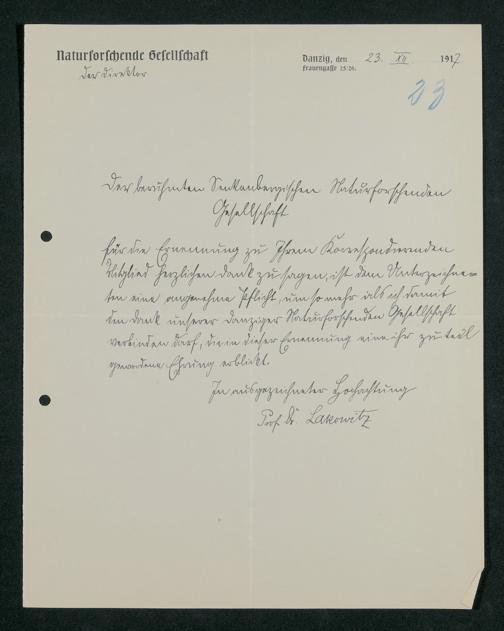 Naturforschende Gesellschaft
Der Direktor
Danzig, den 23. XII 1917
Frauengasse 25/26.
23
Der berühmten Senkenbergischen Naturforschenden
Gesellschaft
für die Ernennung zu Ihrem Korrespondierenden
Mitglied herzlichen Dank zu sagen, ist dem Unterzeichne-
ten eine angenehme Pflicht, um so mehr als ich damit
den Dank unserer Danziger Naturforschenden Gesellschaft
verbinden darf, die in dieser Ernennung eine ihr zu teil
gewordene Ehrung erblickt.
In ausgezeichneter Hochachtung
Prof. Dr. Lakowitz